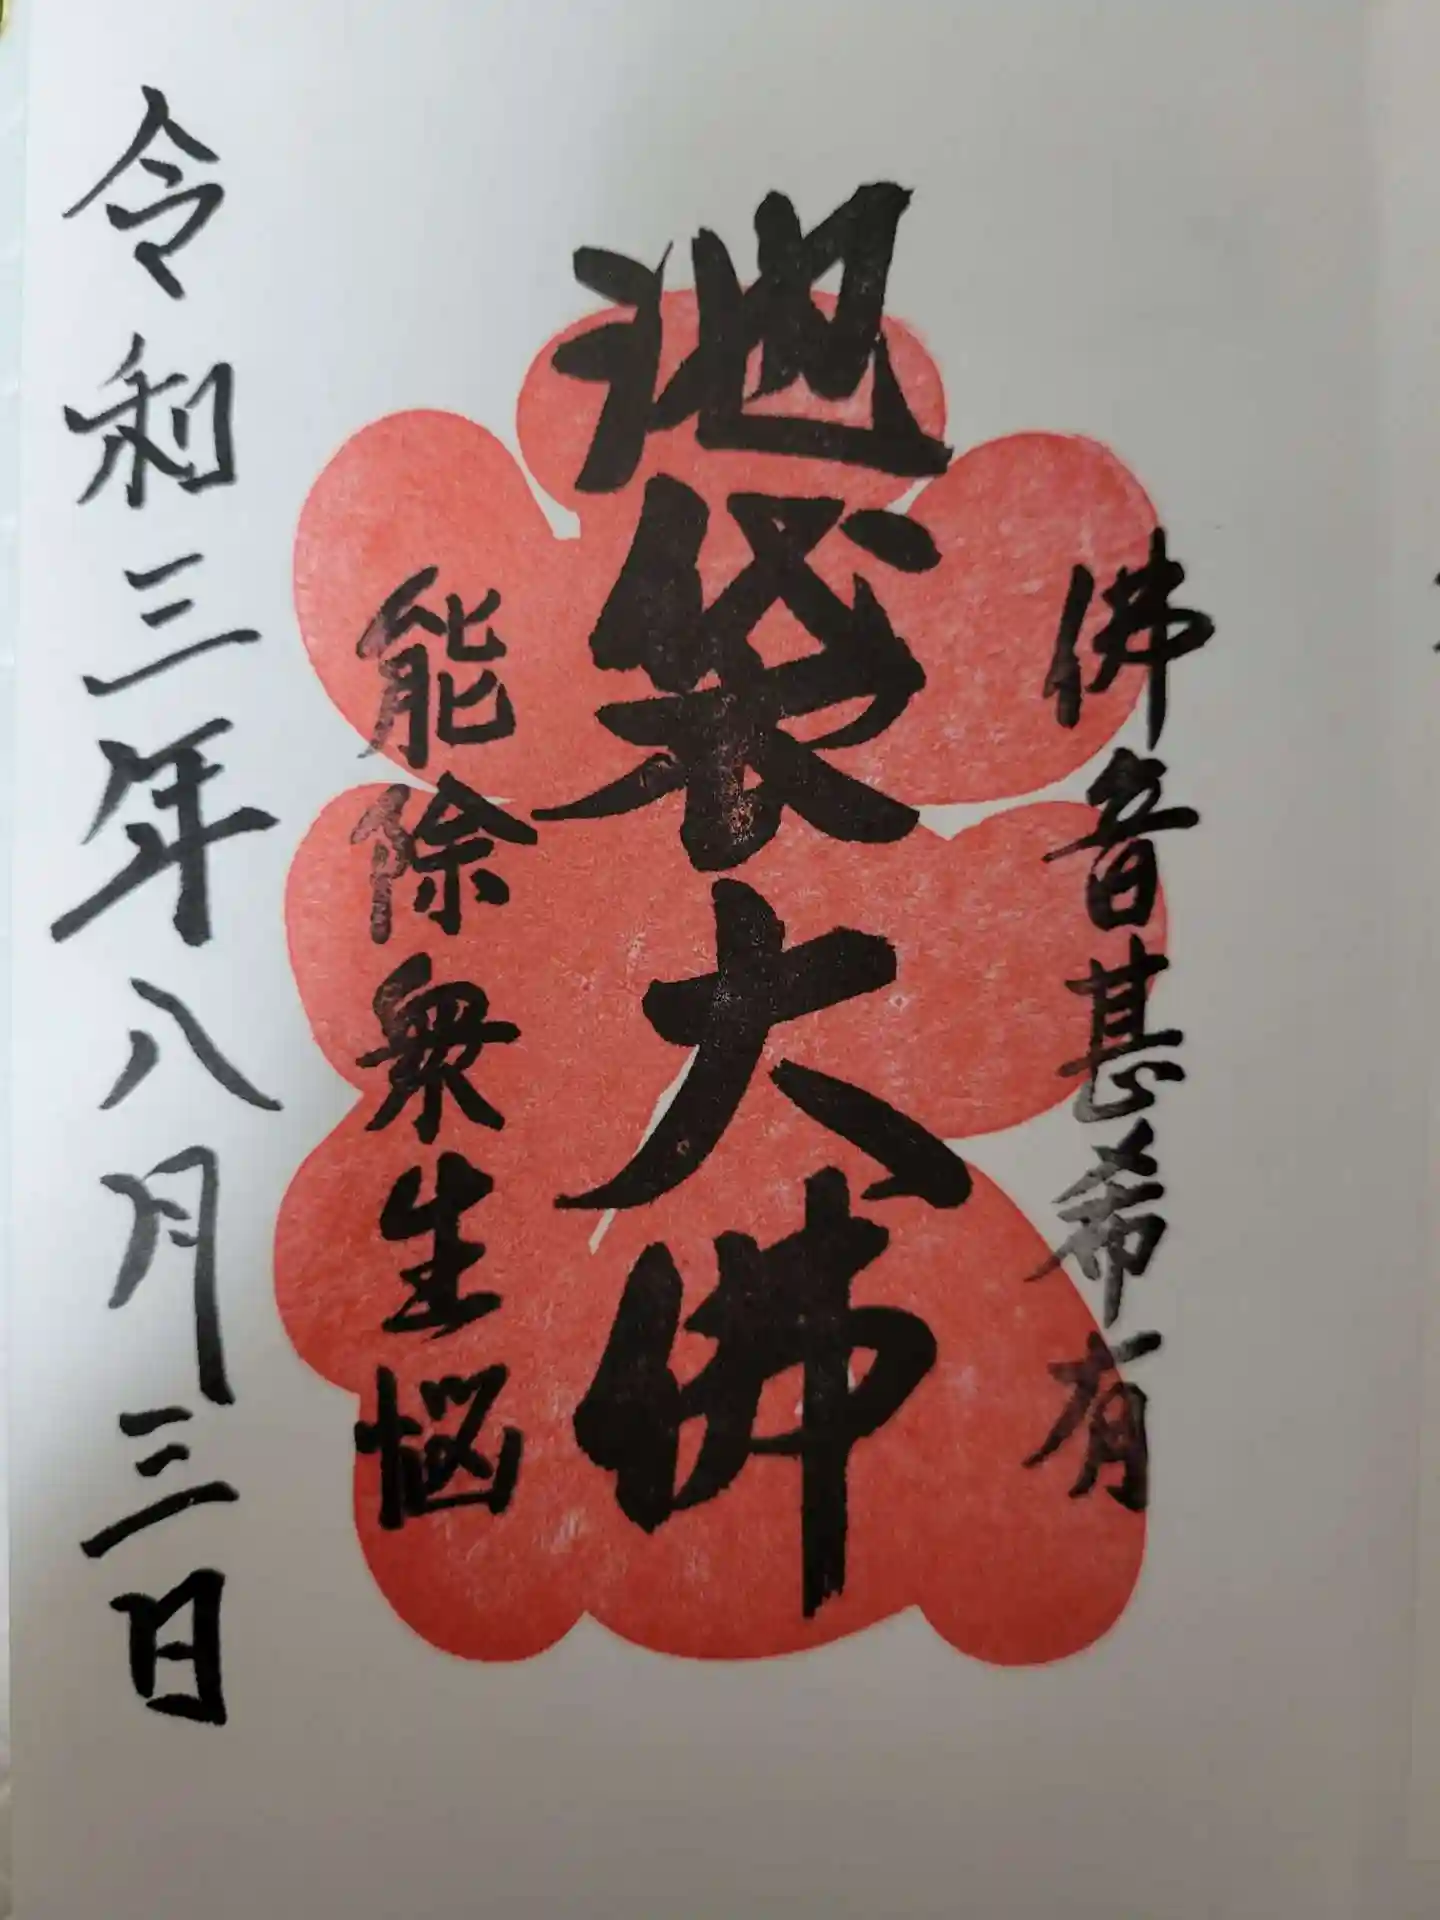 佛音甚希有
池袋大佛
能除衆生悩
令和三年八月三日